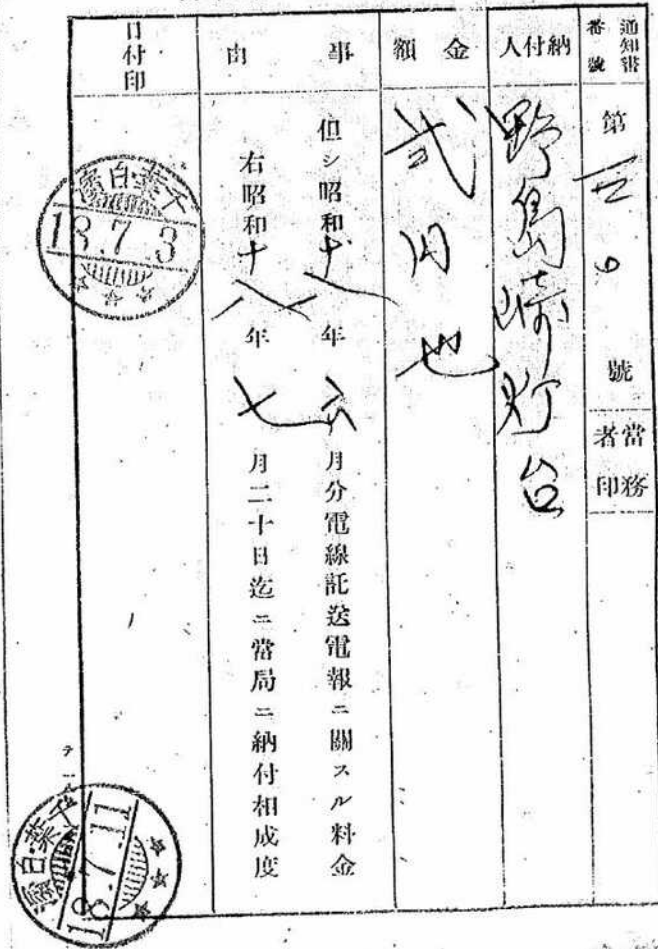 通知書番號
第 三〇 號
當務者印
納付人
野島崎灯台
金額
弐円也
事由
但シ昭和十八年六月分電線託送電報ニ關スル料金
右昭和十八年七月二十日迄ニ當局ニ納付相成度
日付印
千葉・白濱
18.7.3
千葉・白濱
18.7.11